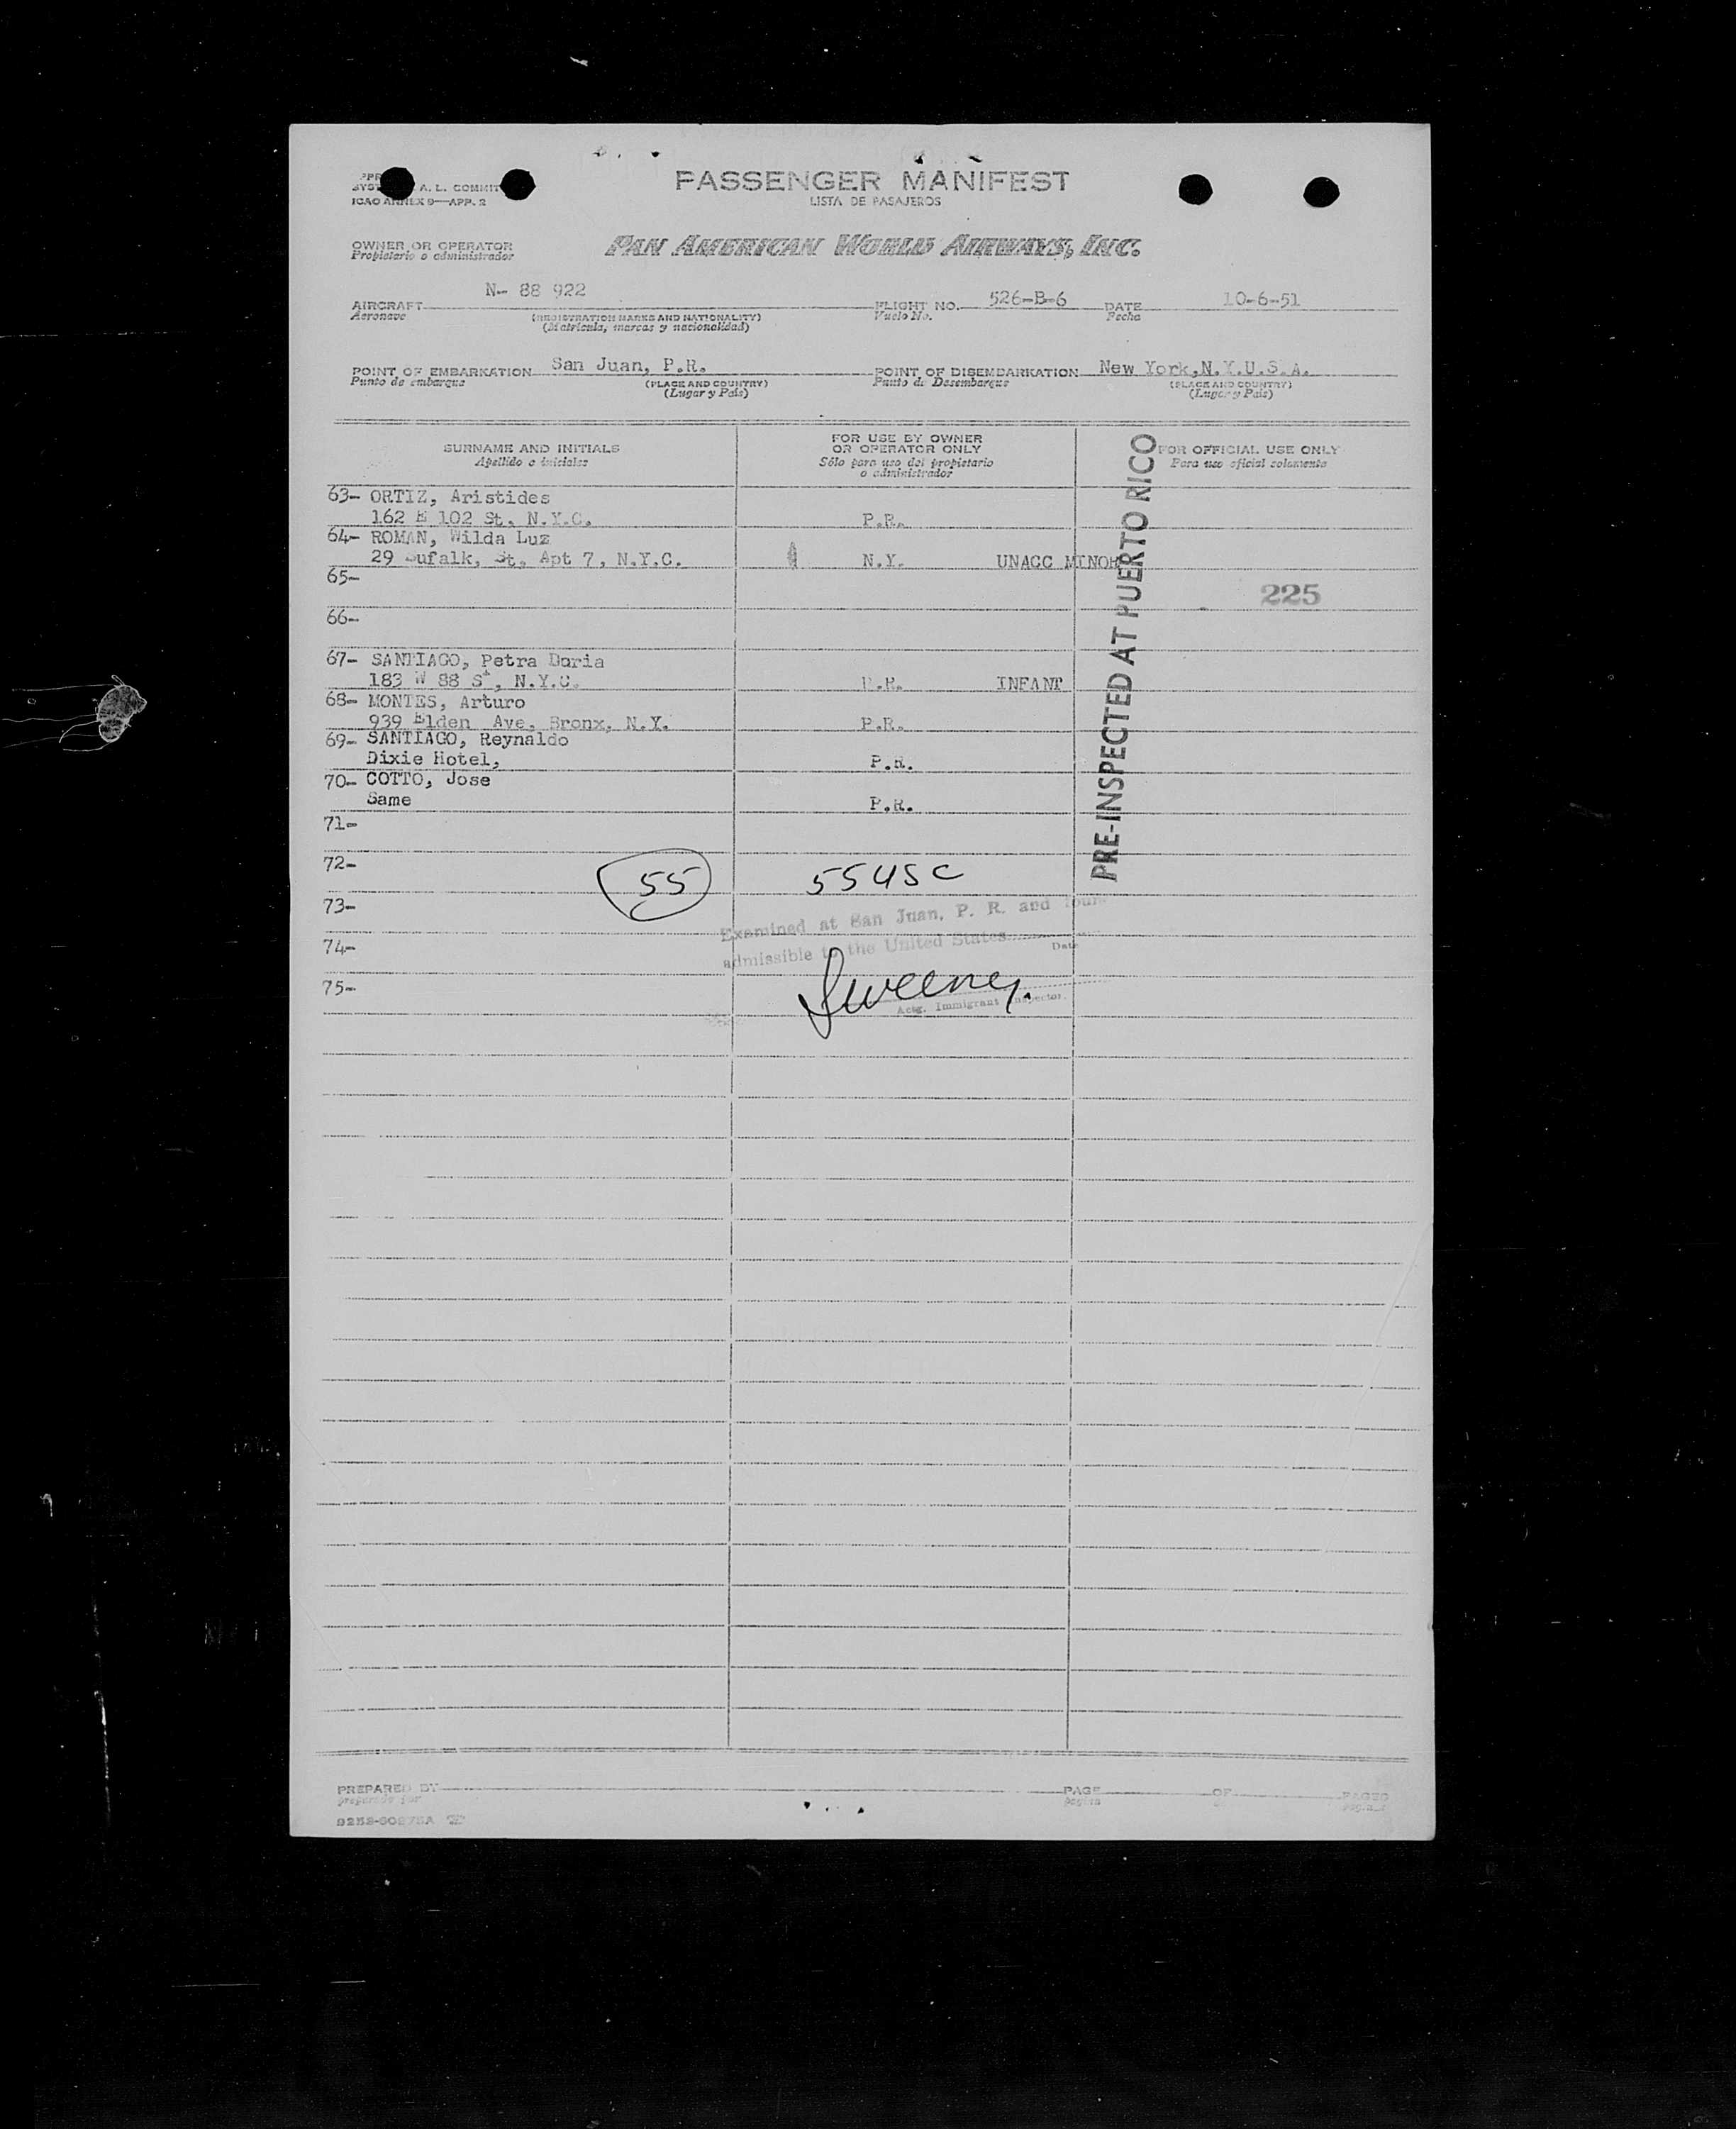 PASSENGER MANIFEST
LISTA DE PASAJEROS
A. L. COMMIT
ICAO ANNEX 9—APP. 2
OWNER OR OPERATOR
Propietario o administrador
PAN AMERICAN WORLD AIRWAYS, INC.
AIRCRAFT N- 88 922 FLIGHT NO. 526-B-6 DATE 10-6-51
Aeronave (REGISTRATION MARKS AND NATIONALITY) Vuelo No. Fecha
(Matricula, marcas y nacionalidad)
POINT OF EMBARKATION San Juan, P.R. POINT OF DISEMBARKATION New York,N.Y.U.S.A.
Punto de embarque (PLACE AND COUNTRY) Punto de Desembarque (PLACE AND COUNTRY)
(Lugar y País) (Lugar y País)
SURNAME AND INITIALS
Apellido e iniciales
FOR USE BY OWNER
OR OPERATOR ONLY
Sólo para uso del propietario
o administrador
FOR OFFICIAL USE ONLY
Para uso oficial solamente
PRE-INSPECTED AT PUERTO RICO
63- ORTIZ, Aristides
162 E 102 St. N.Y.C. P.R.
64- ROMAN, Wilda Luz
29 Sufalk, St, Apt 7, N.Y.C. N.Y. UNACC MINOR
65-
225
66-
67- SANTIAGO, Petra Daria
183 W 88 St, N.Y.C. P.R. INFANT
68- MONTES, Arturo
939 Elden Ave, Bronx, N.Y. P.R.
69- SANTIAGO, Reynaldo
Dixie Hotel, P.R.
70- COTTO, Jose
Same P.R.
71-
72-
55 55USC
73-
Examined at San Juan, P. R. and found
74-
admissible to the United States
Date
75-
Sweeney.
Actg. Immigrant Inspector.
PREPARED BY PAGE OF PAGES
preparado por Página